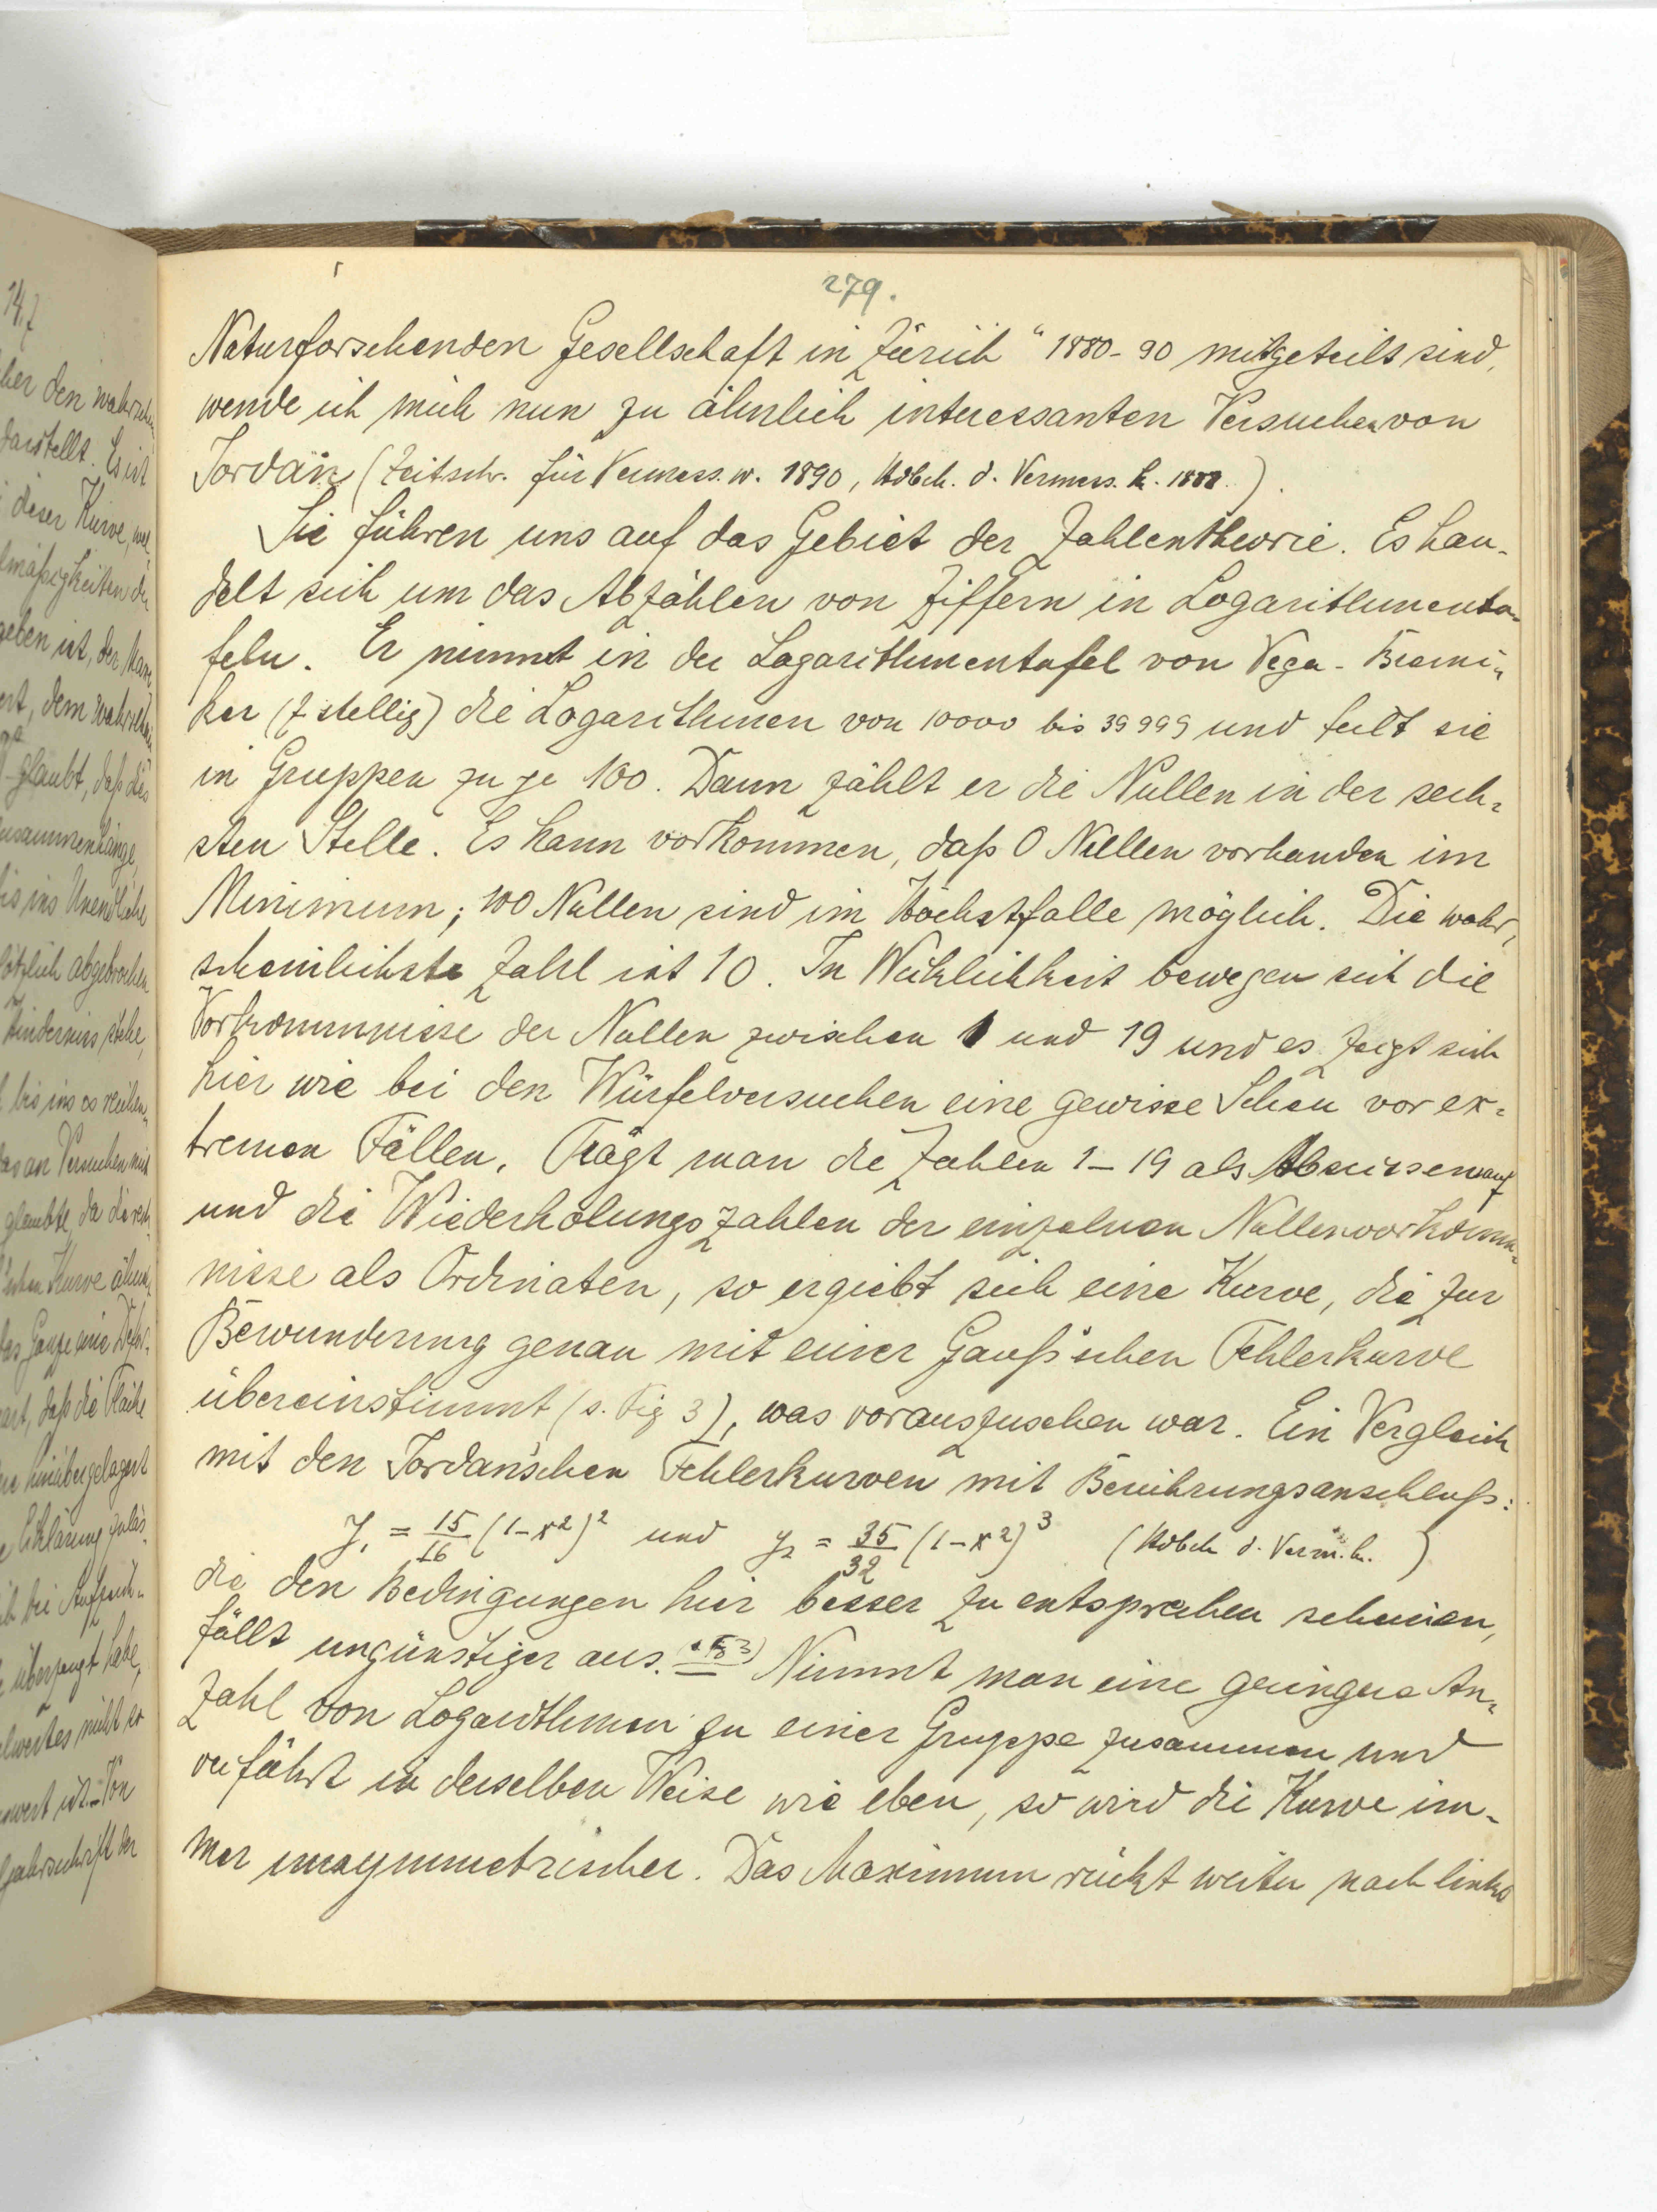 14.7
her den wahrsch
darstellt. Es ist
dieser Kurve, wel
lmäßigkeiten de
geben ist, der
ert, dem wahrsch
glaubt, daß die
usammenhänge,
is ins Unendliche
lötzlich abgebrochen
Hindernis stehe,
bis ins ∞ reichen
das an Versuchen mit
glaubte, da die
schen Kurve ähn
das Ganze eine
art, daß die Fläche
hinübergelagert
Erklärung zuläs
ich bei
überzeugt habe,
lwertes nicht so
wert ist. Von
ljahrschrift der
279.
Naturforschenden Gesellschaft in Zürich" 1880-90 mitgeteilt sind,
wende ich mich nun zu ähnlich interessanten Versuchen von
Jordan (Zeitschr. für Vermess. w. 1890, Hdbch. d. Vermess. k. 1888.).
Sie führen uns auf das Gebiet der Zahlentheorie. Es han-
delt sich um das Abzählen von Ziffern in Logarithmenta-
feln. Er nimmt in der Logarithmentafel von Vega-Bremi-
ker (7 stellig) die Logarithmen von 10000 bis 39999 und teilt sie
in Gruppen zu je 100. Dann zählt er die Nullen in der sech-
sten Stelle. Es kann vorkommen, daß 0 Nullen vorhanden im
Minimum; 100 Nullen sind im Höchstfalle möglich. Die wahr-
scheinlichste Zahl ist 10. In Wirklichkeit bewegen sich die
Vorkommnisse der Nullen zwischen 1 und 19 und es zeigt sich
hier wie bei den Würfelversuchen eine gewisse Scheu vor ex-
tremen Fällen. Trägt man die Zahlen 1-19 als Abscissen auf
und die Wiederholungszahlen der einzelnen Nullenvorkomm-
nisse als Ordinaten, so ergiebt sich eine Kurve, die zur
Bewunderung genau mit einer Gauß'schen Fehlerkurve
übereinstimmt (s. Fig 3), was vorauszusehen war. Ein Vergleich
mit den Jordan'schen Fehlerkurven mit Berührungsanschluß:
y₁ = 15/16 (1-x²)² und y₂ = 35/32 (1-x²)³ (Hdbch d. Verm. k.)
die den Bedingungen hier besser zu entsprechen scheinen,
fällt ungünstiger aus. Nimmt man eine geringere An-
zahl von Logarithmen zu einer Gruppe zusammen und
verfährt in derselben Weise wie eben, so wird die Kurve im-
mer unsymmetrischer. Das Maximum rückt weiter nach links